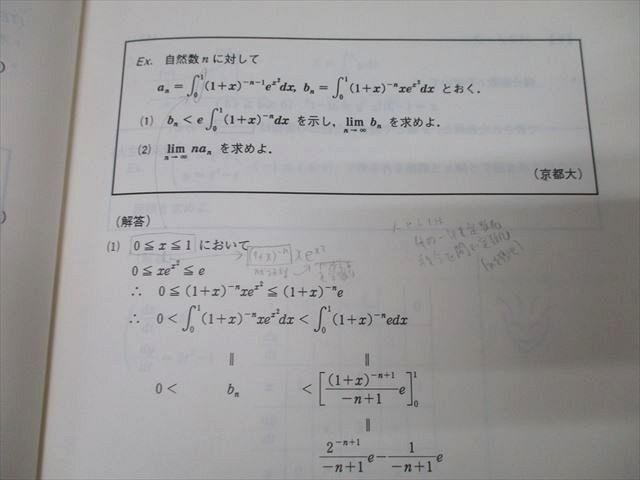 Ex. 自然数 n に対して
aₙ = ∫₀¹(1+x)⁻ⁿ⁻¹e^{x²}dx, bₙ = ∫₀¹(1+x)⁻ⁿxe^{x²}dx とおく.
(1) bₙ < e∫₀¹(1+x)⁻ⁿdx を示し, lim_{n→∞} bₙ を求めよ.
(2) lim_{n→∞} naₙ を求めよ.
(京都大)
(解答)
(1) 0≦x≦1 において
(1+x)⁻ⁿ xe^{x²}
0≦xe^{x²}≦e
∴ 0≦(1+x)⁻ⁿxe^{x²}≦(1+x)⁻ⁿe
∴ 0<∫₀¹(1+x)⁻ⁿxe^{x²}dx<∫₀¹(1+x)⁻ⁿedx
∥ ∥
0< bₙ <[(1+x)⁻ⁿ⁺¹/(-n+1) e]₀¹
∥
2⁻ⁿ⁺¹/(-n+1) e - 1/(-n+1) e